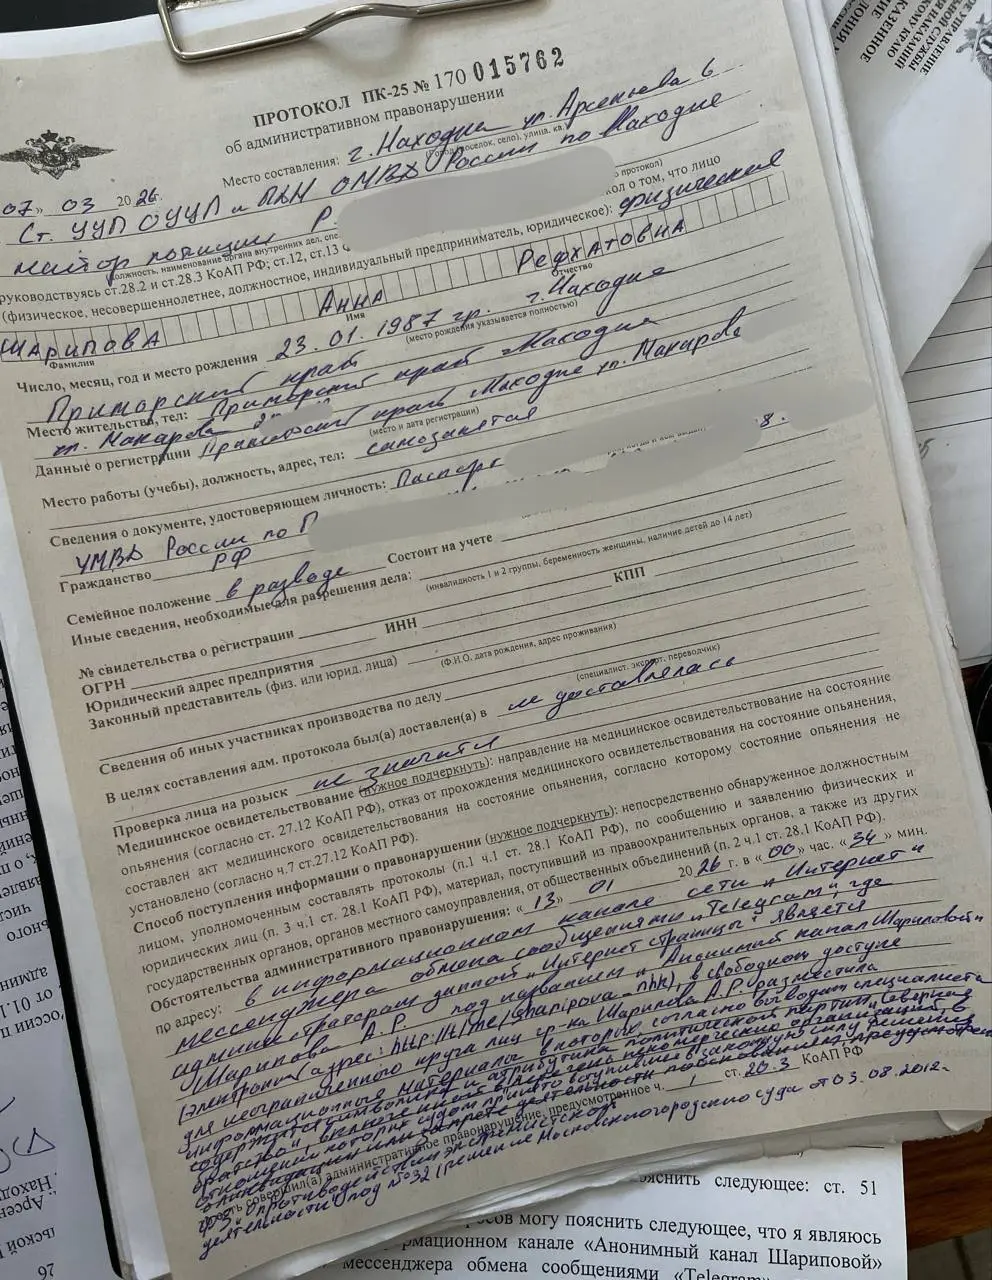 ПРОТОКОЛ ПК-25 № 170 015762
об административном правонарушении
Место составления: г. Находка ул. Арсеньева 6
(город, поселок, село), улица, кв.
07» 03 2026.
Ст. УУП ОУУП и ПДН ОМВД России по Находке
майор полиции Р.
протокол)
должность, наименование органа внутренних дел,
руководствуясь ст.28.2 и ст.28.3 КоАП РФ; ст.12, ст.13
о том, что лицо
(физическое, несовершеннолетнее, должностное, индивидуальный предприниматель, юридическое): физическое
ШАРИПОВА АННА РЕФХАТОВНА
Фамилия Имя Отчество
Число, месяц, год и место рождения 23.01.1987 гр. г. Находка
(место рождения указывается полностью)
Приморский край
Место жительства, тел: Приморский край г. Находка
ул. Макарова
Данные о регистрации Приморский край г. Находка ул. Макарова
(место и дата регистрации)
Место работы (учебы), должность, адрес, тел: самозанятая
Сведения о документе, удостоверяющем личность: Паспорт
8.
УМВД России по П
Гражданство РФ Состоит на учете
Семейное положение в разводе
Иные сведения, необходимые для разрешения дела:
(инвалидность 1 и 2 группы, беременность женщины, наличие детей до 14 лет)
№ свидетельства о регистрации ИНН КПП
ОГРН
Юридический адрес предприятия
Законный представитель (физ. или юрид. лица)
(Ф.И.О, дата рождения, адрес проживания)
Сведения об иных участниках производства по делу
(специалист, эксперт, переводчик)
В целях составления адм. протокола был(а) доставлен(а) в не доставлялась
Проверка лица на розыск не значится
Медицинское освидетельствование (нужное подчеркнуть): направление на медицинское освидетельствование на состояние
опьянения (согласно ст. 27.12 КоАП РФ), отказ от прохождения медицинского освидетельствования на состояние опьянения,
составлен акт медицинского освидетельствования на состояние опьянения, согласно которому состояние опьянения не
установлено (согласно ч.7 ст.27.12 КоАП РФ).
Способ поступления информации о правонарушении (нужное подчеркнуть): непосредственно обнаруженное должностным
лицом, уполномоченным составлять протоколы (п.1 ч.1 ст. 28.1 КоАП РФ), по сообщению и заявлению физических и
юридических лиц (п. 3 ч.1 ст. 28.1 КоАП РФ), материал, поступивший из правоохранительных органов, а также из других
государственных органов, органов местного самоуправления, от общественных объединений (п. 2 ч.1 ст. 28.1 КоАП РФ).
Обстоятельства административного правонарушения: «13» 01 2026 г. в «00» час. «34» мин.
по адресу: в информационном канале сети „Интернет" и
мессенджера обмена сообщениями „Telegram", где
администратором данной „Интернет страницы" является
Шарипова А.Р. под названием „Анонимный канал Шариповой"
(электронный адрес: http://t.me/sharipova_nhk), в свободном доступе
для неограниченного круга лиц гр-ка Шарипова А.Р. разместила
информационные материалы в которых согласно выводам специалиста
содержатся символика и атрибутика политической партии „Северное
братство", включенного в перечень некоммерческих организаций в
отношении которых судом принято вступившее в законную силу решение
о ликвидации или запрете деятельности по основаниям предусмотрен
то есть совершил(а) административное правонарушение, предусмотренное ч. 1 ст. 20.3 КоАП РФ
ФЗ „О противодействии экстремистской
деятельности" под №32 (решение Московского городского суда от 03.08.2012г.
яснить следующее: ст. 51
росов могу пояснить следующее, что я являюсь
формационном канале «Анонимный канал Шариповой»
мессенджера обмена сообщениями «Telegram»
УПРАВЛЕНИЕ
КАЗЕННОЕ